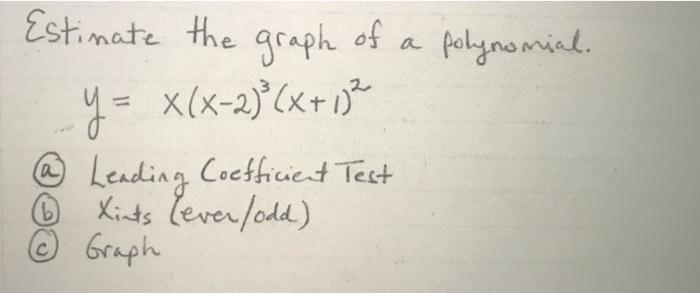 Estimate the graph of a polynomial.
y = x(x-2)³(x+1)²
ⓐ Leading Coefficient Test
ⓑ Xints (ever/odd)
ⓒ Graph